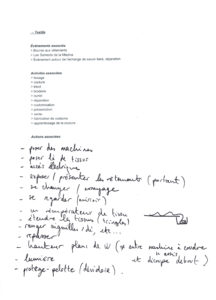 Textile
Événements associés
• Bourse aux vêtements
• Les Samedis de la Mezina
• Événement autour de l'échange de savoir-faire, réparation
Activités associées
• tissage
• couture
• tricot
• broderie
• ourlet
• réparation
• customisation
• présentation
• vente
• fabrication de costume
• apprentissage de la couture
Actions associées
- poser des machines
- poser le tissu
- accès électrique
- exposer / présenter les vêtements (portant)
- se changer / essayage
- se regarder (miroir)
- un récupérateur de tissu
- étendre les tissus (tringles)
- ranger aiguilles / dé, etc...
- repasser
- hauteur plans de W (≠ entre machine à coudre assis et découpe debout)
- lumière
- protège-pelotte (dévidoir).